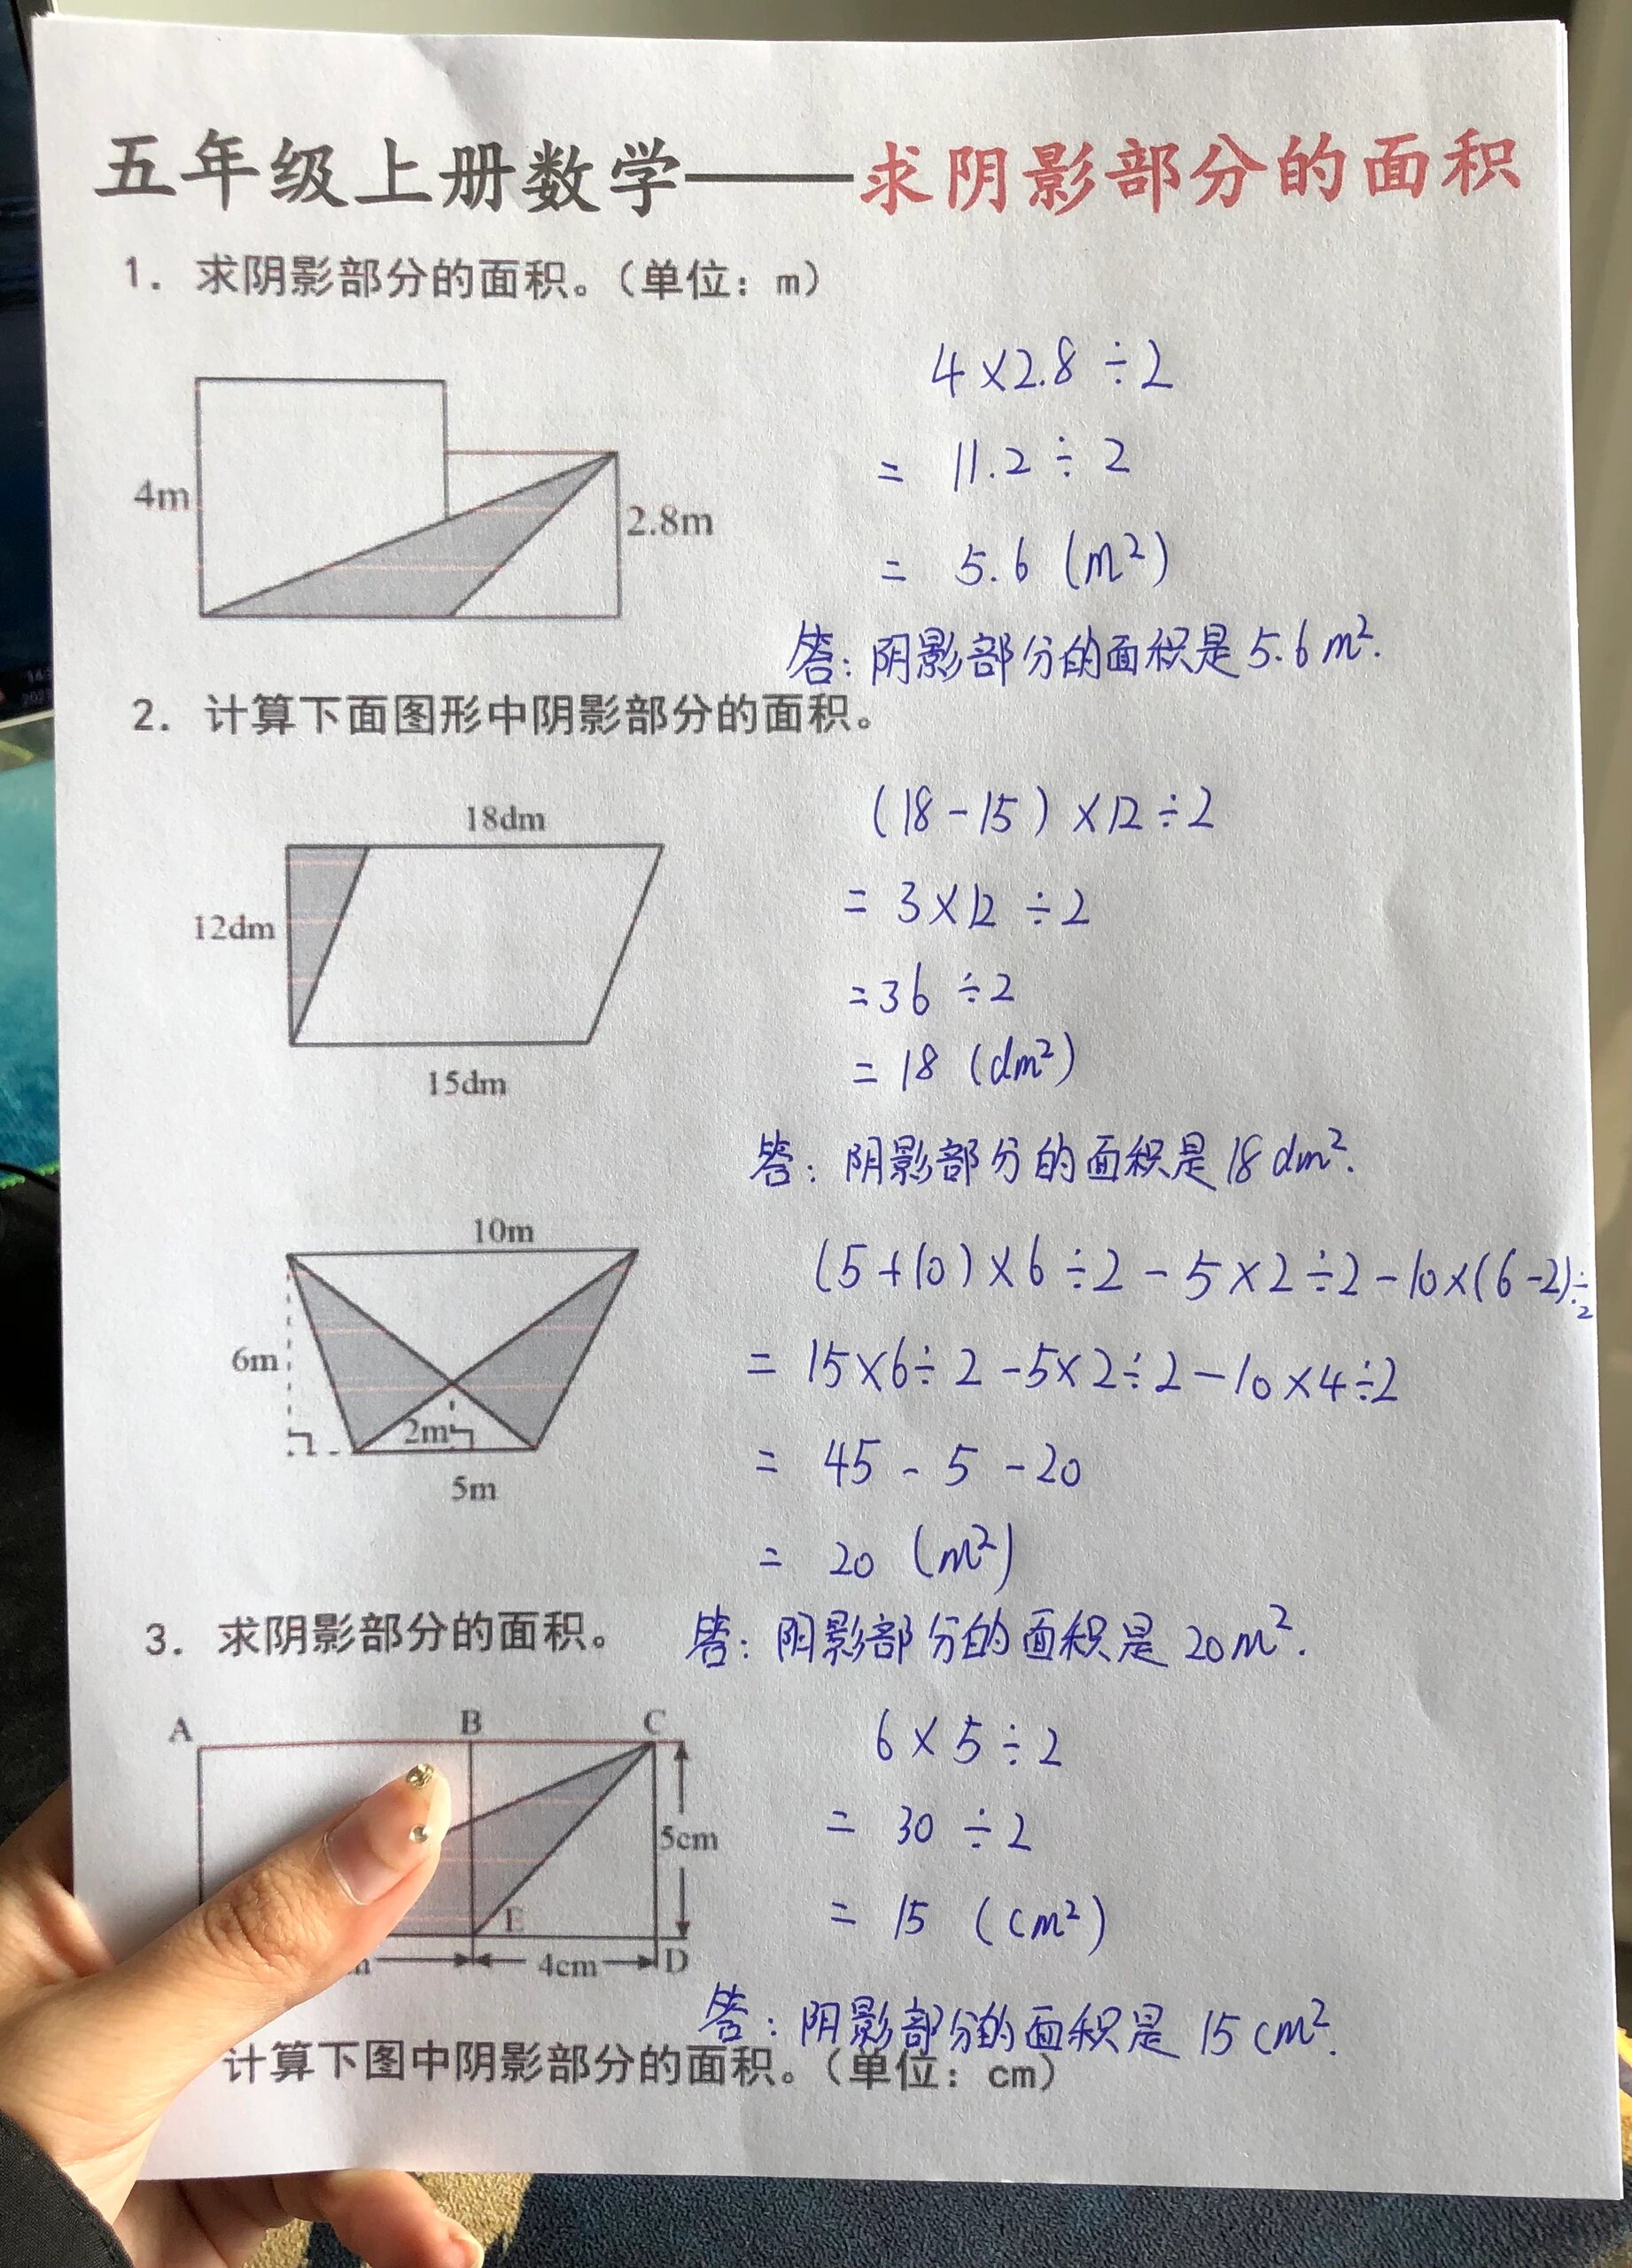 五年级上册数学——求阴影部分的面积
1. 求阴影部分的面积。（单位：m）
4m
2.8m
4×2.8÷2
= 11.2÷2
= 5.6 (m²)
答：阴影部分的面积是5.6m².
2. 计算下面图形中阴影部分的面积。
18dm
12dm
15dm
(18-15)×12÷2
= 3×12÷2
=36÷2
= 18 (dm²)
答：阴影部分的面积是18dm².
10m
6m
2m
5m
(5+10)×6÷2-5×2÷2-10×(6-2)÷2
= 15×6÷2-5×2÷2-10×4÷2
= 45-5-20
= 20 (m²)
答：阴影部分的面积是20m².
3. 求阴影部分的面积。
A B C
5cm
E
4cm D
6×5÷2
= 30÷2
= 15 (cm²)
答：阴影部分的面积是15cm².
计算下图中阴影部分的面积。（单位：cm）